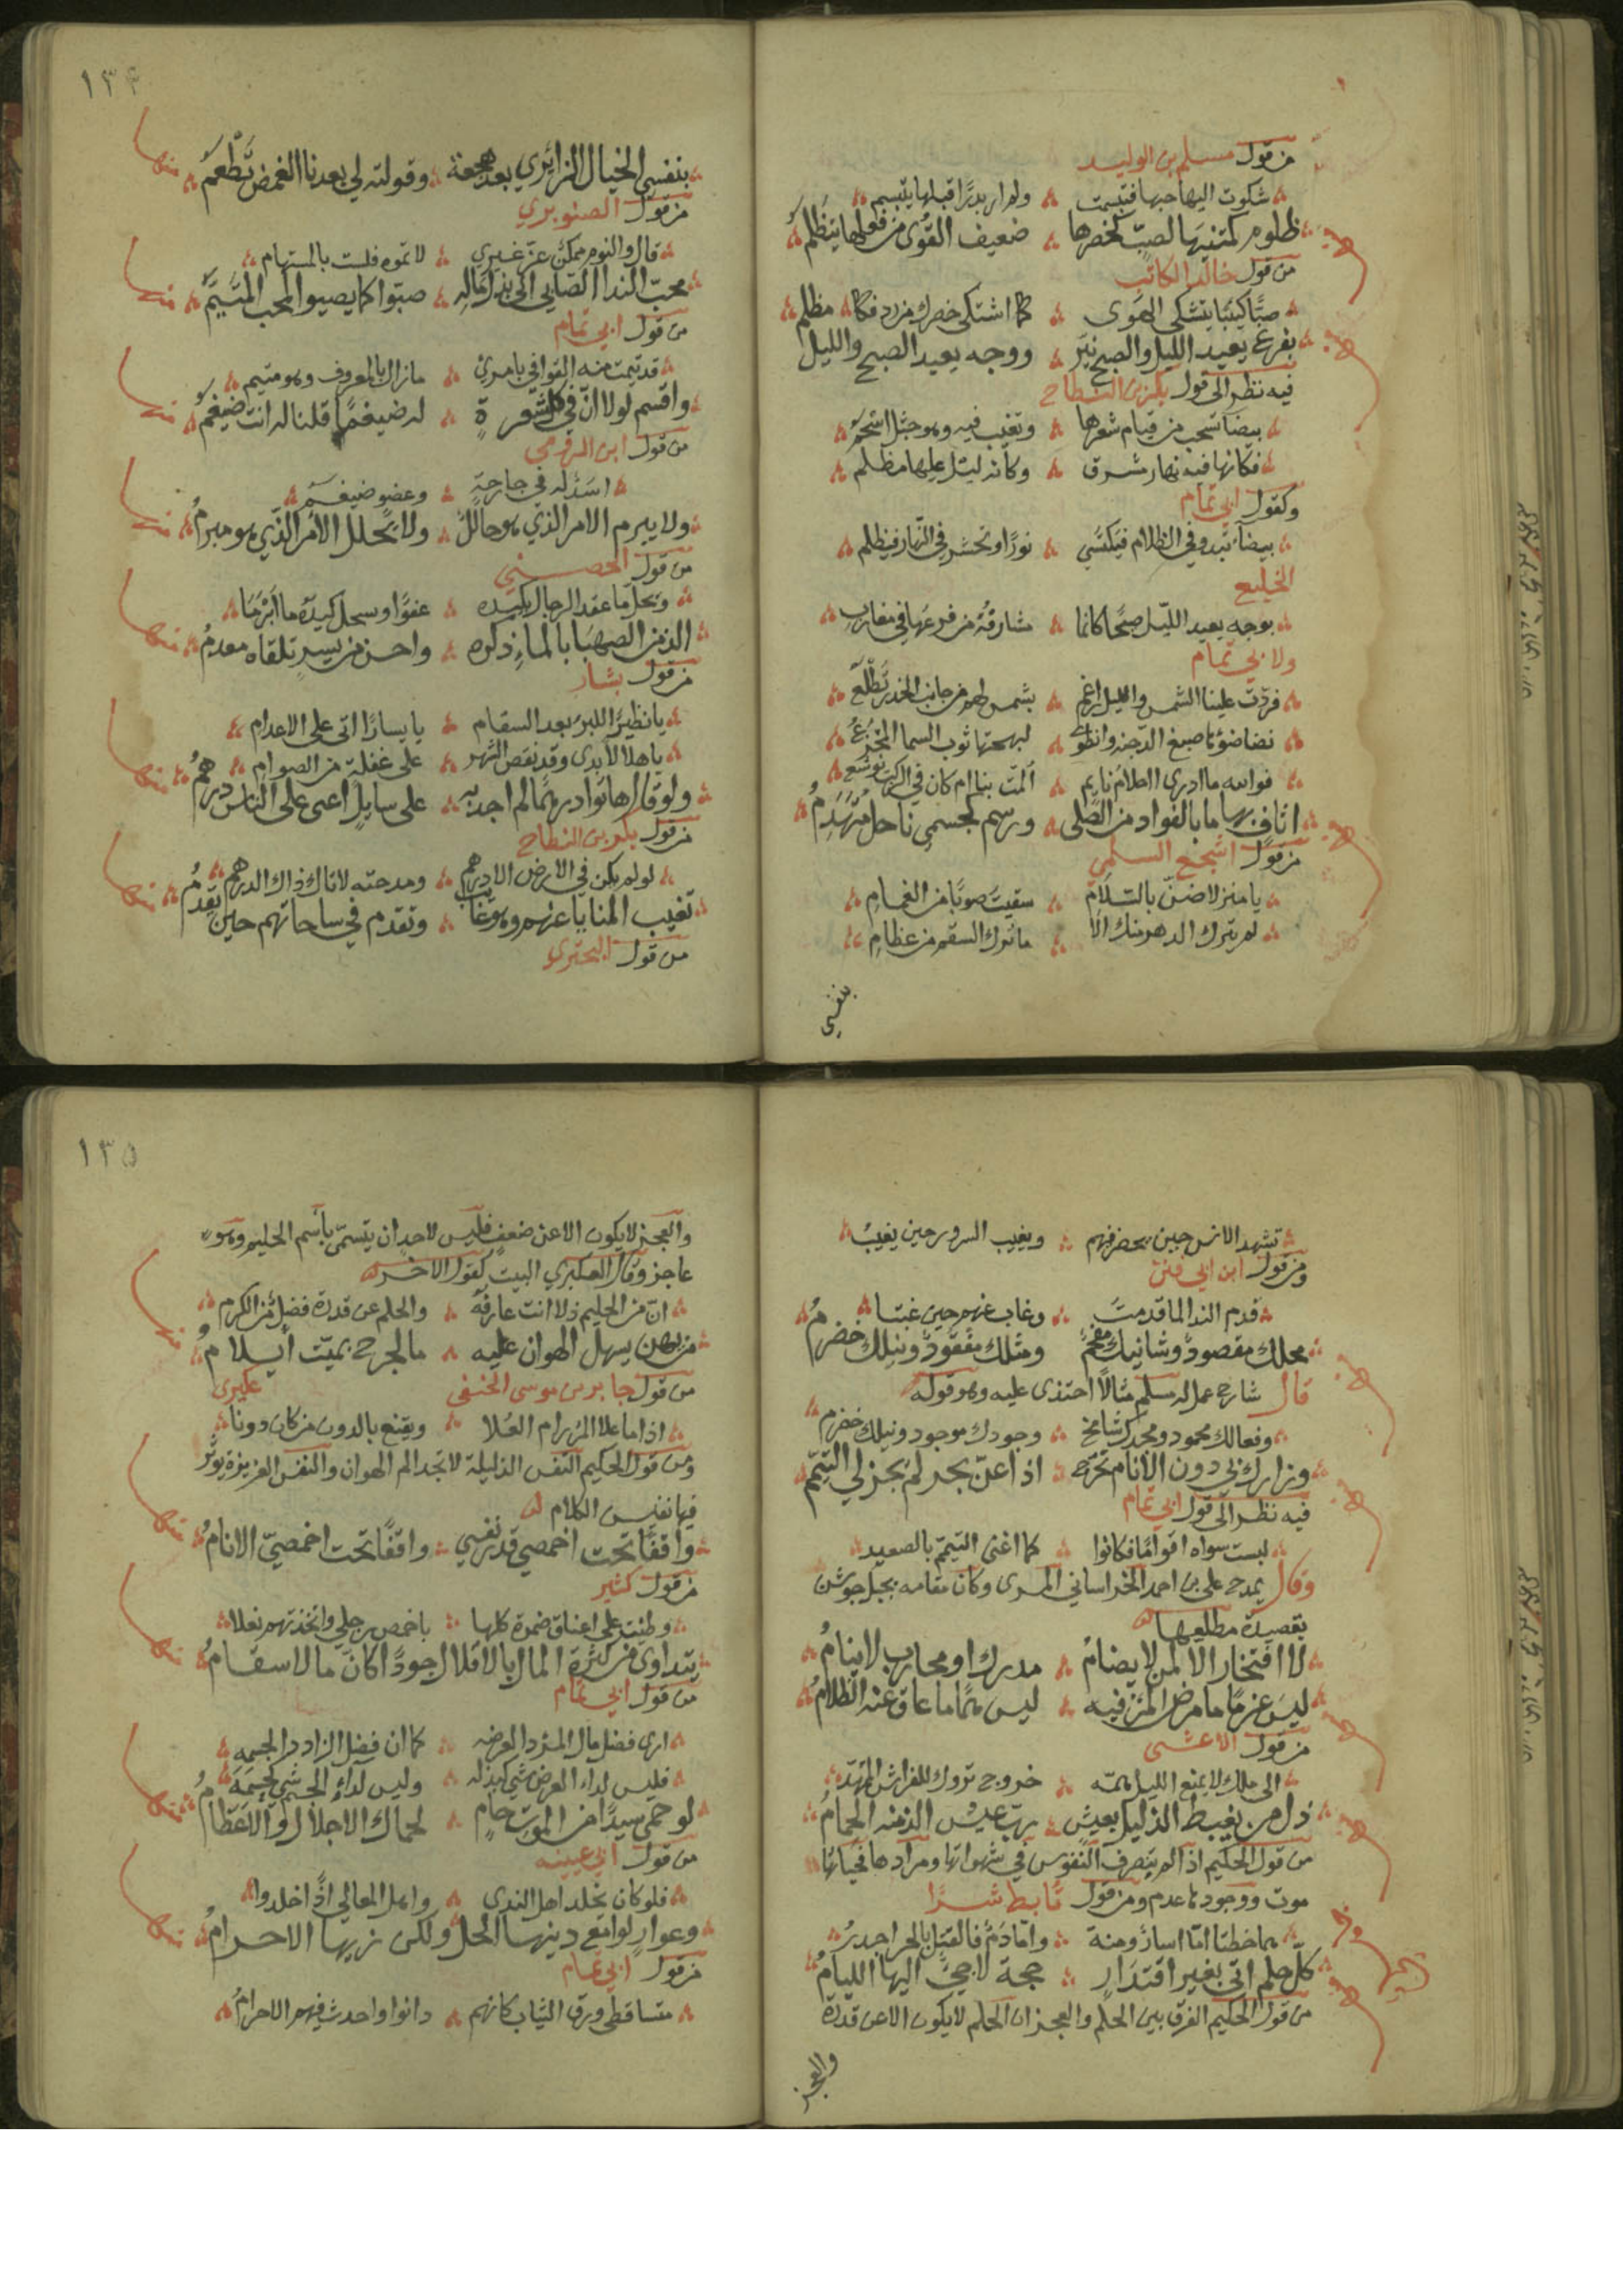 من قول مسلم بن الوليد
شكوت اليها حبها فتبسمت ولم ار بدرًا قبلها يتبسم
ظلوم كمتنيها لصبّ كخصرها ضعيف القوى من فعلها يتظلم
منها
من قول خالد الكاتب
صبًّا كئيبًا يتشكى الهوى كما اشتكى خصرك من ردفكا
بفرع يعيد الليل والصبح نيّر ووجه يعيد الصبح والليل مظلم
منها
فيه نظر الى قول بكر بن النطاح
بيضا تسحب من قيام شعرها وتغيب فيه وهو جثل اسحم
فكانها فيه نهار مشرق وكانه ليل عليها مظلم
وكقول ابي تمام
بيضاء تبدو في الظلام فيكتسي نورًا وتحسر في النهار فيظلم
الخليع
بوجه يعيد الليل صبحًا كانما مشارقه من فرعها في مغارب
ولابي تمام
فردّت علينا الشمس والليل راغم بشمس لهم من جانب الخدر تطلع
نضا ضوؤها صبغ الدجنة وانطوى لبهجتها ثوب السما المجزع
فوالله ما ادرى احلام نايم المّت بنا ام كان في الركب يوشع
اثاف بها ما بالفواد من الصلى ورسم كجسمي ناحل متهدم
منها
من قول اشجع السلمي
يا منزلا ضنّ بالسلام سقيت صوبًا من الغمام
لم يترك الدهر منك الا ما ترك السقم من عظام
بنفسي
١٣٤
بنفسي الخيال الزائري بعد هجعة وقولته لي بعدنا الغمض تطعم
منها
من قول الصنوبري
قال والنوم ممكن عزّ غيري لا تموه فلست بالمستهام
محبّ الندا الصابي الى بذل ماله صبوًا كما يصبو المحب المتيّم
منها
من قول ابي تمام
قد تيمت منه القوافي بامرئ ما زال بالمعروف وهو متيم
واقسم لولا انّ في كل شعرة له ضيغمًا قلنا له انت ضيغم
منها
من قول ابن الرومي
اسد له في جارحة وعضو ضيغم
ولا يبرم الامر الذي هو حالل ولا يحلل الامر الذي هو مبرم
منها
من قول الحصيني
ويحل ما عقد الرجال بكيده عفوًا وسحل كيده ما ابرما
الذ من الصهبا بالماء ذكره واحسن من يسر تلقاه معدم
منها
من قول بشار
يا نظيرًا للبر بعد السقام يا يسارًا اتى على الاعدام
يا هلالا بدى وقد نقص الشهر على غفلة من الصوام
ولو قال هاتوا درهمًا لم اجد به على سايل اعى على الناس درهم
منها
من قول بكر بن النطاح
لو لم يكن في الارض الا درهم ومدحته لاتاك ذاك الدرهم
تغيب المنايا عنهم وهو غايب وتقدم في ساحاتهم حين يقدم
منها
من قول البحتري
تشهد الانس حين يحضر فيهم ويغيب السرور حين يغيب
ومن قول ابن ابي فنن
قدم الندا لما قدمت وغاب عنهم حين غبتا
محلك مقصود وشانيك مفحم ومثلك مفقود ونيلك خضرم
منها
قال شارح عمل له مسلم مثالًا احتذى عليه وهو قوله
وفعالك محمود ومجدك شامخ وجودك موجود ونيلك خضرم
وزارك بي دون الانام تحرّج اذا عنّ بحر لم يجز لي التيمّم
منها
فيه نظر الى قول ابي تمام
لبست سواه اقوامًا فكانوا كما اغنى التيمم بالصعيد
وقال يمدح على بن احمد الخراساني المرى وكان مقامه بجبل جوشن
بقصيدة مطلعها
لا افتخار الا لمن لا يضام مدرك او محارب لا ينام
ليس عزمًا ما مرض المرء فيه ليس همًا ما عاق عنه الظلام
منها
من قول الاعشى
الى ملك لا يمنع الليل همّه خروج تروك للفراش الممهّد
ذل من يغبط الذليل بعيش رب عيش الذ منه الحمام
منها
من قول الحكيم اذا لم يتصرف النفوس في شهواتها ومرادها فحياتها
موت ووجودها عدم ومن قول تابط شرًا
هما خطتا امّا اسار ومنة وامّا دم فالقتل بالحر اجدر
كلّ حلم اتى بغير اقتدار حجة لاجئ اليها الليام
منها
من قول الحكيم الفرق بين الحلم والعجز ان الحلم لا يكون الا عن قدرة
والعجز
١٣٥
والعجز لا يكون الا عن ضعف فليس لاحد ان يتسمّى باسم الحليم وهو
عاجز وقال العكبري البيت كقول الاخر
انّ من الحليم ذلا انت عارفه والحلم عن قدرة فضل من الكرم
من يهن يسهل الهوان عليه ما لجرح بميّت ايلام
منها
من قول جابر بن موسى الحنفي عكبرى
اذا ما علا المرء رام العلا ويقنع بالدون من كان دونا
ومن قول الحكيم النفس الذليلة لا تجد الم الهوان والنفس العزيزة يوثر
فيها نفيس الكلام
واقفًا تحت اخمصي قدر نفسي واقفًا تحت اخمصيّ الانام
منها
من قول كثير
وطئت على اعناق ضمرة كلها باخمص رجلي واتخذتهم نعلا
يتداوى من كثرة المال بالاقلال جودًا كان مالا سقام
منها
من قول ابي تمام
ارى فضل مال المرء دا لعرضه كما ان فضل الزاد دا لجسمه
فليس لداء العرض شي كبذله وليس لداء الجسم شي كحسمه
لو حمى سيدًا من الموت حامٍ لحماك الاجلال والاعظام
منها
من قول ابي عيينه
فلو كان يخلد اهل الندى واهل المعالي اذًا خلدوا
وعوار لوامع دينها الحل ولكن زيها الاحرام
منها
من قول ابي تمام
متساقطى ورق الثياب كانهم دانوا واحدث فيهم الاحرام